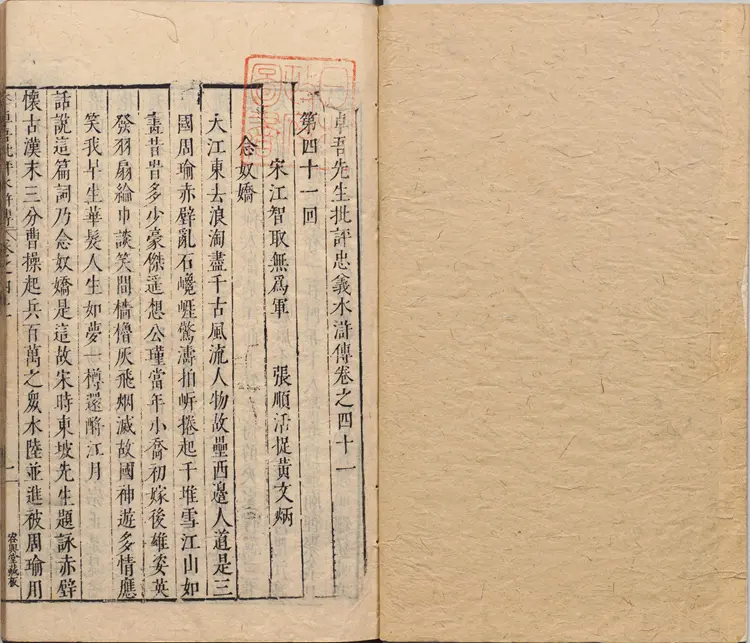 卓吾先生批評忠義水滸傳卷之四十一
第四十一回
宋江智取無爲軍 張順活捉黃文炳
念奴嬌
大江東去浪淘盡千古風流人物故壘西邊人道是三
國周瑜赤壁亂石巉崖驚濤拍岍捲起千堆雪江山如
畵昔昔多少豪傑遥想公瑾當年小喬初嫁後雄姿英
發羽扇綸巾談笑間檣櫓灰飛烟滅故國神遊多情應
笑我早生華髮人生如夢一樽還酹江月
話說這篇詞乃念奴嬌是這故宋時東坡先生題詠赤壁
懷古漢末三分曹操起兵百萬之衆水陸並進被周瑜用
容與堂藏板